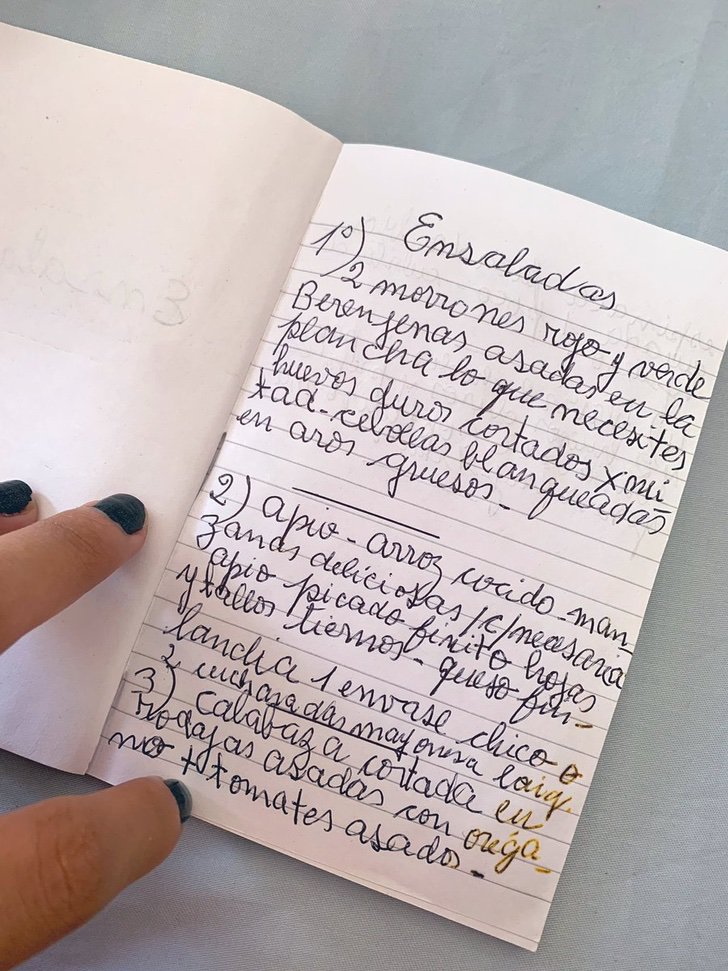 Ensaladas
1º)
2 morrones rojo y verde
Berenjenas asadas en la
plancha lo que necesites
huevos duros cortados x mi
tad - cebollas blanqueadas
en aros gruesos -
2) apio - arroz cocido - man_
zanas deliciosas /c/necesaria
apio picado finito hojas
y tallos tiernos - queso fin_
landia 1 envase chico o
2 cucharadas mayonesa
3) calabaza cortada en
rodajas asadas con oréga_
no + tomates asados -